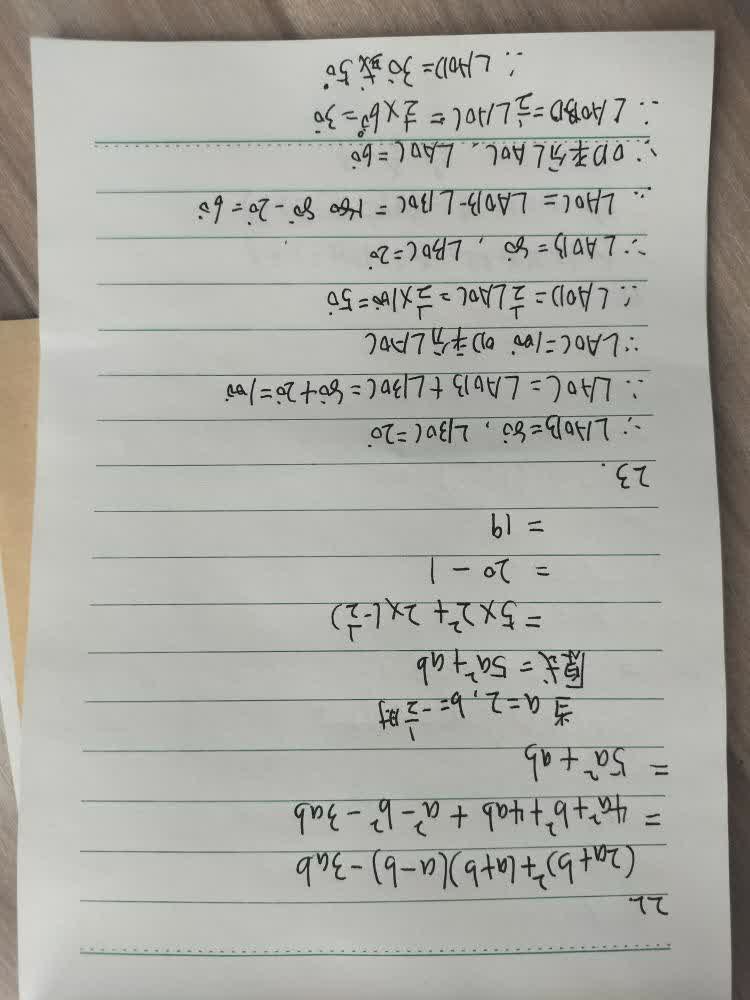 22
(2a+b)²+(a+b)(a-b)-3ab
= 4a²+b²+4ab+a²-b²-3ab
= 5a²+ab
当a=2,b=-1/2时
原式=5a²+ab
=5×2²+2×(-1/2)
= 20-1
= 19
23.
∵∠AOB=80°,∠BOC=20°
∴∠AOC=∠AOB+∠BOC=80°+20°=100°
∵∠AOC=100° OD平分∠AOC
∴∠AOD=1/2∠AOC=1/2×100°=50°
∵∠AOB=80°,∠BOC=20°
∴∠AOC=∠AOB-∠BOC= 80°-20°=60°
∵OD平分∠AOC,∠AOC=60°
∴∠AOBD=1/2∠AOC=1/2×60°=30°
∴∠AOD=30°或50°